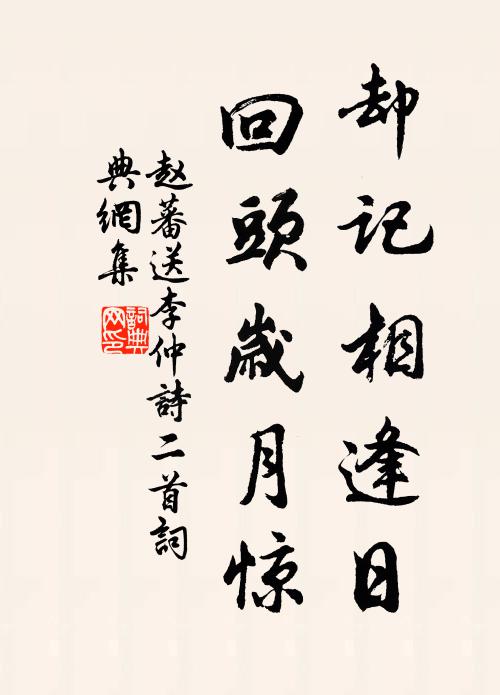 却记相逢日
回頭歲月惊
赵蕃送李仲詩二首詞
典網集
詞典网印